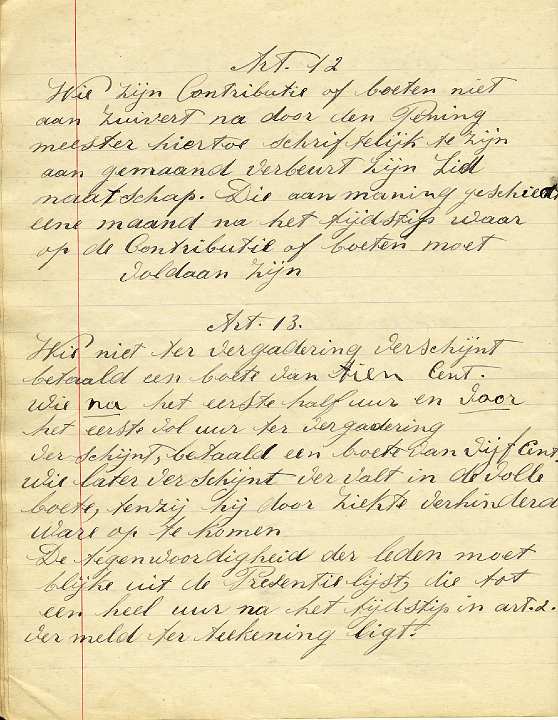 Art. 12
Wie zijn Contributie of boeten niet
aan zuivert na door den Pening
meester hiertoe schriftelijk te zijn
aan gemaand verbeurt zijn Lid
maatschap. Die aan maning geschied
eene maand na het tijdstip waar
op de Contributie of boeten moet
voldaan zijn
Art. 13.
Wie niet ter vergadering verschijnt
betaald een boete van tien Cent.
Wie na het eerste half uur en voor
het eerste vol uur ter vergadering
ver schijnt, betaald een boete van vijf Cent
wie later ver schijnt ver valt in de volle
boete, tenzij hij door ziekte verhinderd
ware op te komen
De tegenwoordigheid der leden moet
blijke uit de Presentie lijst, die tot
een heel uur na het tijdstip in art. 2.
ver meld ter teekening ligt.